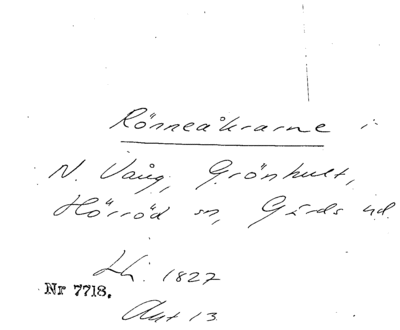 Rönneåkrarne i
N. Vång, Grönhult,
Hörröd sn, Gärds hd
Lk. 1827
Nr 7718.
Akt 13